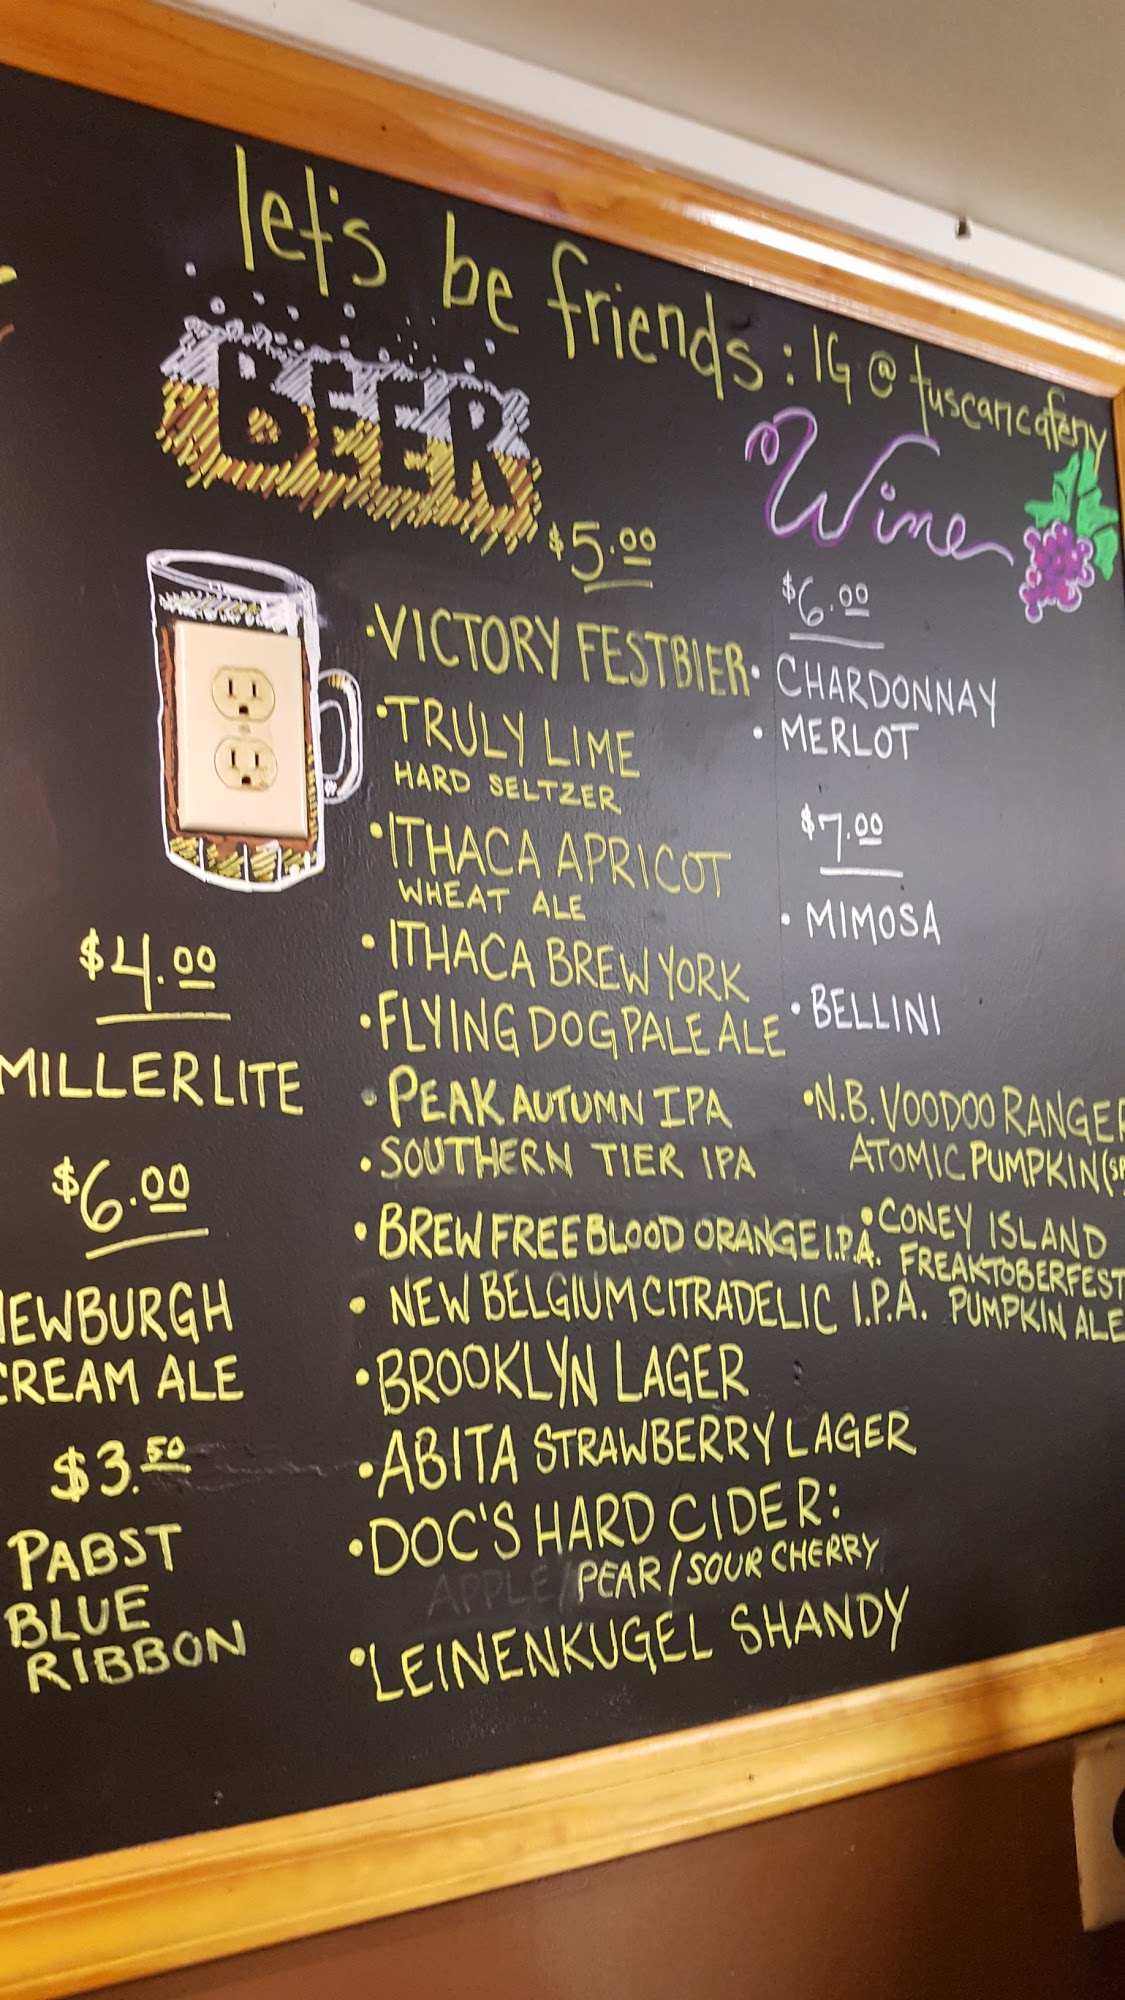 let's be friends: IG @ tuscancafeny
BEER
$4.00
MILLER LITE
$6.00
NEWBURGH
CREAM ALE
$3.50
PABST
BLUE
RIBBON
$5.00
• VICTORY FESTBIER
• TRULY LIME
HARD SELTZER
• ITHACA APRICOT
WHEAT ALE
• ITHACA BREW YORK
• FLYING DOG PALE ALE
• PEAK AUTUMN IPA
• SOUTHERN TIER IPA
• BREW FREE BLOOD ORANGE I.P.A.
• NEW BELGIUM CITRADELIC I.P.A.
• BROOKLYN LAGER
• ABITA STRAWBERRY LAGER
• DOC'S HARD CIDER:
APPLE/PEAR/SOUR CHERRY
• LEINENKUGEL SHANDY
Wine
$6.00
• CHARDONNAY
• MERLOT
$7.00
• MIMOSA
• BELLINI
• N.B. VOODOO RANGER
ATOMIC PUMPKIN
• CONEY ISLAND
FREAKTOBERFEST
PUMPKIN ALE